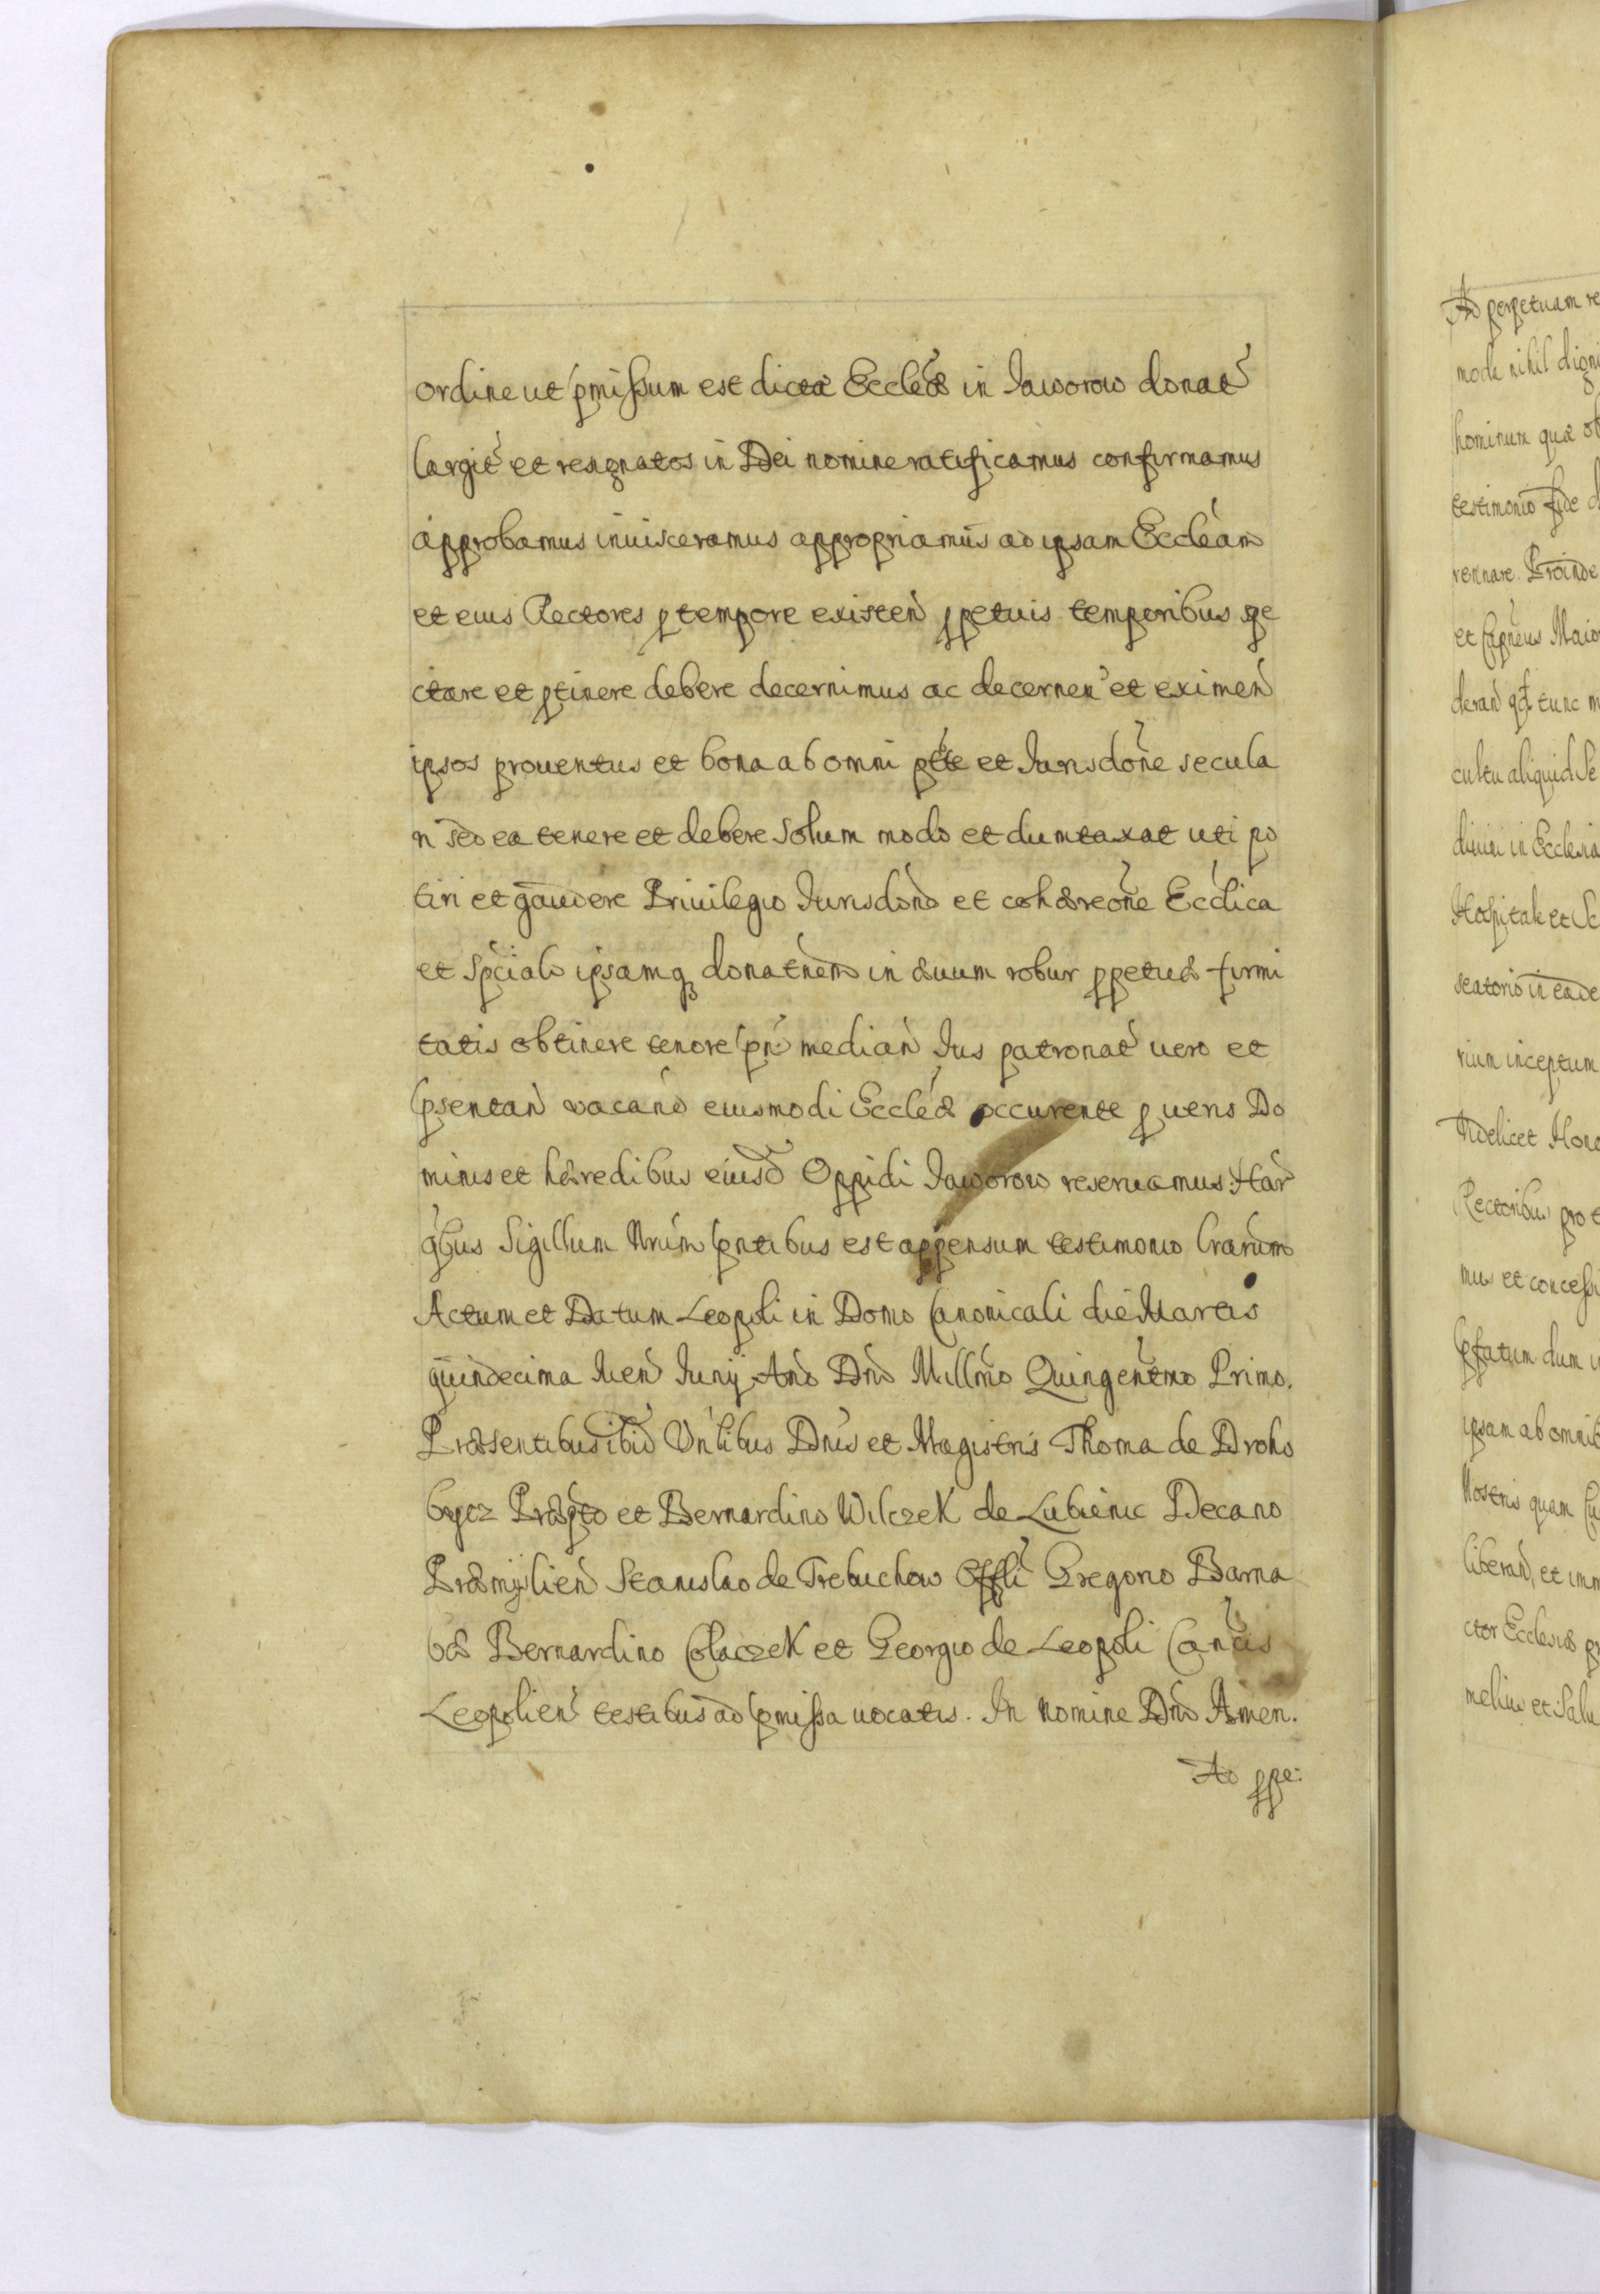 ordine ut pmissum est dictæ Eccleæ in Jaworow donat
largit et resignatos in Dei nomine ratificamus confirmamus
approbamus inuisceramus appropriamus ad ipsam Eccleam
et eius Rectores p tempore existen ppetuis temporibus spe
ctare et ptinere debere decernimus ac decernen et eximen
ipsos prouentus et bona ab omni ptte et Jurisdone secula
ri sed ea tenere et debere solum modo et dumtaxat uti po
tiri et gaudere Priuilegio Jurisdond et cohæreone Ecclica
et spciali ipsamq donatnem in suum robur ppetuæ firmi
tatis obtinere tenore pn median Jus patronat uero et
psentan vacand eiusmodi Eccleæ occurente p ueris Do
minis et hæredibus eiusd Oppidi Jaworow reseruamus Har
qbus Sigillum Nrum pntibus est appensum testimonio lrarum
Actum et Datum Leopoli in Domo Canonicali die Martis
quindecima Men Junij Ano Dni Millmo Quingentmo Primo.
Præsentibus ibid Vnlibus Dnis et Magistris Thoma de Droho
bycz Præpto et Bernardino Wilczek de Lubienic Decano
Præmyslien Stanislao de Trebuchow Offli Gregorio Barna
bæ Bernardino Colaczek et Georgio de Leopoli Cancis
Leopolien testibus ad pmissa uocatis. In nomine Dni Amen.
Ad ppe:
Ad perpetuam re
mode nihil digni
hominum quæ ob
testimonio fide d
rennare. Proinde
et Capneus Maio
deran qd tunc m
cultu aliquid Se
diuini in Ecclesia
Hospitale et Sc
seatorio in eade
rium inceptum
Videlicet Hono
Rectoribus pro t
mus et concessi
pfatum dum u
ipsam ab omnib
Nostris quam Cu
liberan, et imm
ctor Ecclesiæ pr
melius et Salu